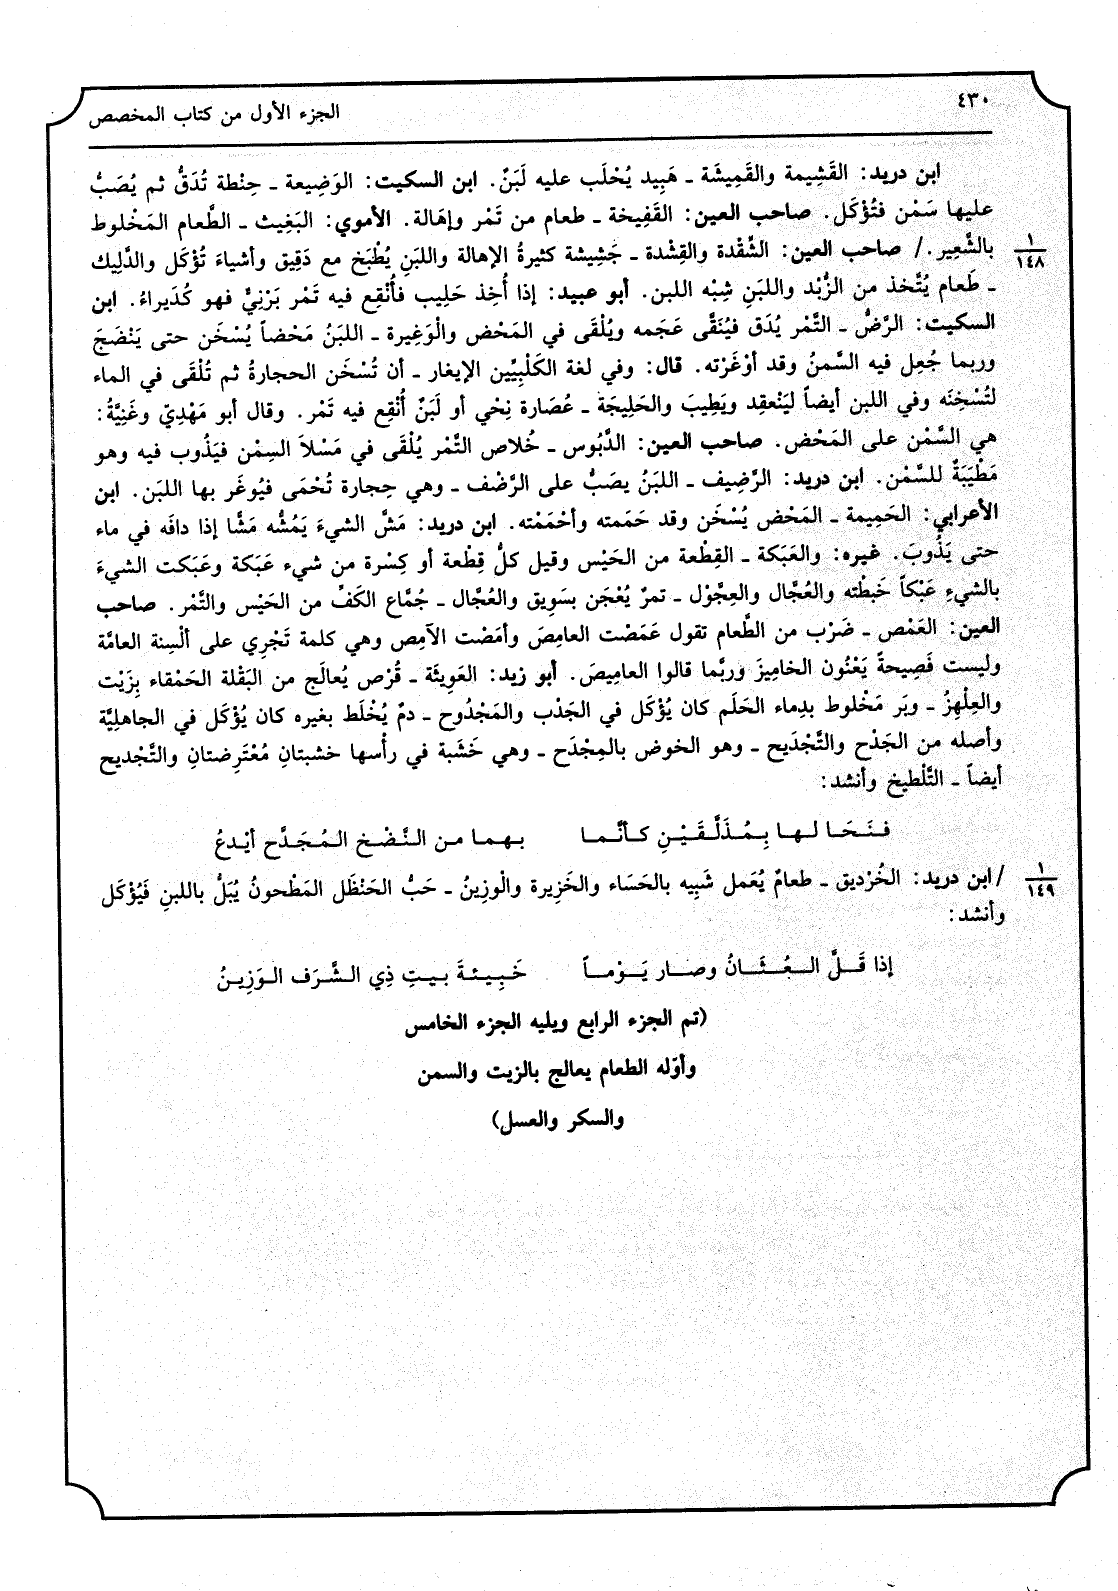 ٤٣٠
الجزء الأول من كتاب المخصص
ابن دريد: القَشِيمة والقَمِيشَة ـ هَبِيد يُحْلَب عليه لَبَنٌ. ابن السكيت: الوَضِيعة ـ حِنْطة تُدَقُّ ثم يُصَبُّ
عليها سَمْن فتُؤْكَل. صاحب العين: القَفِيخة ـ طعام من تَمْر وإهَالة. الأموي: البَغِيث ـ الطَّعام المَخْلوط
بالشَّعِير./ صاحب العين: الشِّقْدة والقِشْدة ـ جَشِيشة كثيرةُ الإهالة واللبَنِ يُطْبَخ مع دَقِيق وأشياءَ تُؤْكَل والدَّلِيك
١
١٤٨
ـ طَعام يُتَّخذ من الزُّبْد واللبَنِ شِبْه اللبن. أبو عبيد: إذا أُخِذ حَلِيب فأُنْقِع فيه تَمْر بَرْنِيٌّ فهو كُدَيراءُ. ابن
السكيت: الرَّضُّ ـ التَّمْر يُدَق فيُنَقَّى عَجَمه ويُلْقَى في المَحْض والْوَغِيرة ـ اللبَنُ مَحْضاً يُسْخَن حتى يَنْضَجَ
وربما جُعِل فيه السَّمنُ وقد أوْغَرْته. قال: وفي لغة الكَلْبِيِّين الإيغار ـ أن تُسْخَن الحجارةُ ثم تُلْقَى في الماء
لتُسْخِنَه وفي اللبن أيضاً ليَنْعقِد ويَطِيبَ والحَلِيجَة ـ عُصَارة نِحْي أو لَبَنٌ أُنْقِع فيه تَمْر. وقال أبو مَهْدِيّ وغَنِيَّةُ:
هي السَّمْن على المَحْض. صاحب العين: الدَّبُوس ـ خُلاص التَّمْر يُلْقَى في مَسْلاَ السِمْن فيَذُوب فيه وهو
مَطْيَبَةٌ للسَّمْن. ابن دريد: الرَّضِيف ـ اللبَنُ يصَبُّ على الرَّضْف ـ وهي حِجارة تُحْمَى فيُوغَر بها اللبَن. ابن
الأعرابي: الحَمِيمة ـ المَحْض يُسْخَن وقد حَمَمته وأحْمَمْته. ابن دريد: مَشَّ الشيءَ يَمُشُّه مَشًّا إذا دافَه في ماء
حتى يَذُوبَ. غيره: والعَبَكة ـ القِطْعة من الحَيْس وقيل كلُّ قِطْعة أو كِسْرة من شيء عَبَكة وعَبَكت الشيءَ
بالشيءِ عَبْكاً خَبطْته والعُجَّال والعِجَّوْل ـ تمرٌ يُعْجَن بسَوِيق والعُجَّال ـ جُمَّاع الكَفِّ من الحَيْس والتَّمْر. صاحب
العين: العَمْص ـ ضَرْب من الطَّعام تقول عَمَصْت العامِصَ وأمَصْت الآمِص وهي كلمة تَجْرِي على ألْسِنة العامَّة
وليست فَصِيحةً يَعْنُون الخامِيزَ وربَّما قالوا العامِيصَ. أبو زيد: العَوِيثَة ـ قُرْص يُعالَج من البَقْلة الحَمْقاء بِزَيْت
والعِلْهِزُ ـ وبَر مَخْلوط بدِماء الحَلَم كان يُؤْكَل في الجَدْب والمَجْدُوح ـ دمٌ يُخْلَط بغيره كان يُؤْكَل في الجاهليَّة
وأصله من الجَدْح والتَّجْدَيح ـ وهو الخوض بالمِجْدَح ـ وهي خَشَبة في رأْسها خشبتانِ مُعْتَرِضتانِ والتَّجْديح
أيضاً ـ التَّلْطيخ وأنشد:
فـنَـحَـا لـهـا بِـمُـذَلَّـقَـيْـنِ كـأنَّـمـا بـهـمـا مـن الـنَّـضْـخ الـمُـجَـدَّح أيْـدعُ
/ابن دريد: الخُرْديق ـ طعامٌ يُعَمل شَبِيه بالحَسَاء والخَزِيرة والْوزِينُ ـ حَبُّ الحَنْظَل المَطْحونُ يُبَلُّ باللبنِ فَيُؤْكَل
١
١٤٩
وأنشد:
إذا قَــلَّ الــعُــثَــانُ وصــار يَــوْمــاً خَـبِـيـئـةَ بـيـتِ ذِي الـشَّـرَف الـوَزِيـنُ
(تم الجزء الرابع ويليه الجزء الخامس
وأوّله الطعام يعالج بالزيت والسمن
والسكر والعسل)